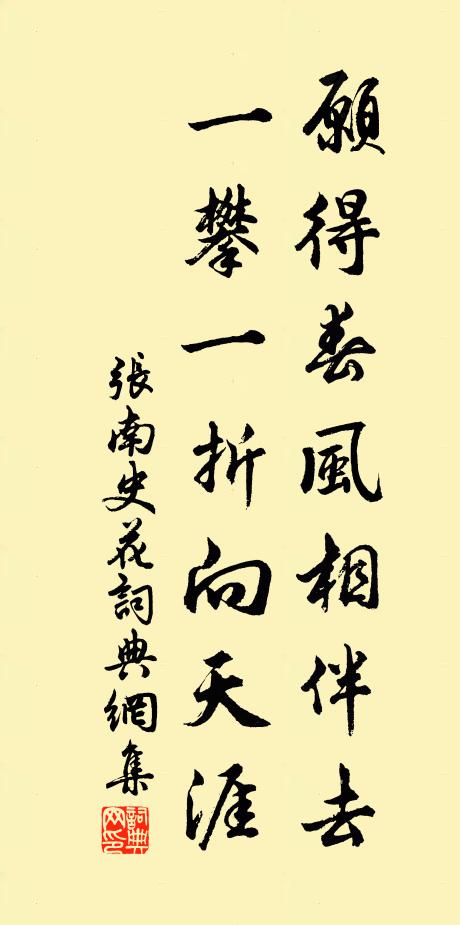 願得春風相伴去
一攀一折向天涯
張南史花詞典網集
詞典網印